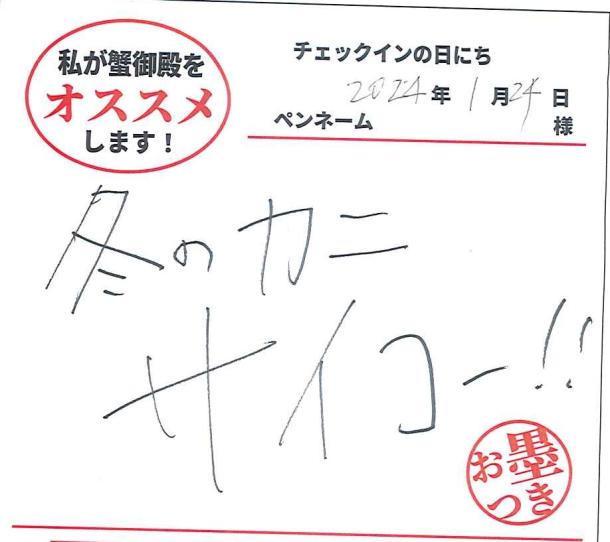 私が蟹御殿を
オススメ
します！
チェックインの日にち
2024年1月24日
ペンネーム 様
冬のカニ
サイコー!!
お墨
つき